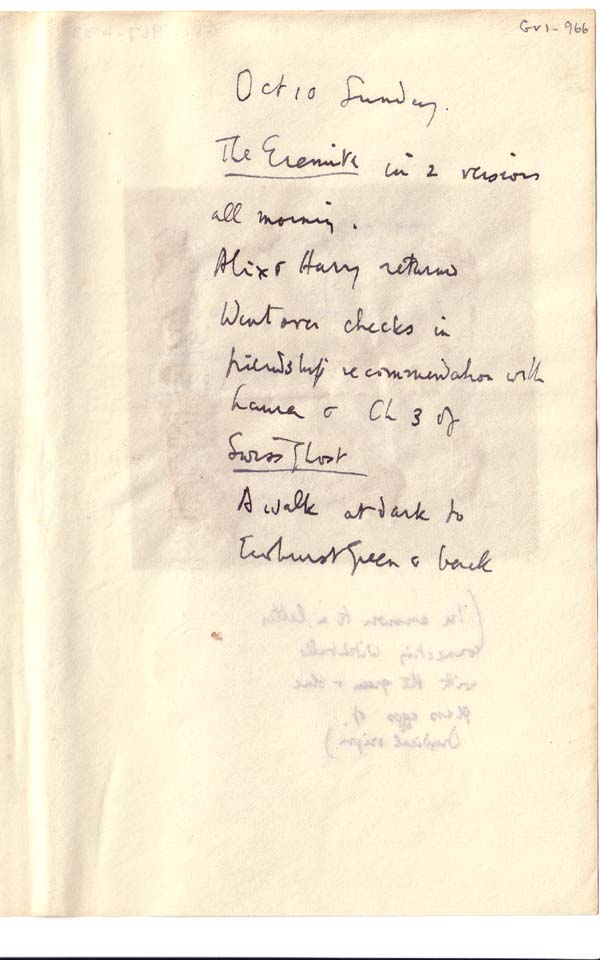 Gv1-966
Oct 10 Sunday.
The Eremite in 2 versions
all morning.
Alix & Harry returned
Went over checks in
friendship recommendation with
Laura & Ch 3 of
Swiss Ghost
A walk at dark to
Ewhurst Green & back
(in answer to a letter
connecting Witchballs
with the green & blue
glass eggs of
Druidical origin)